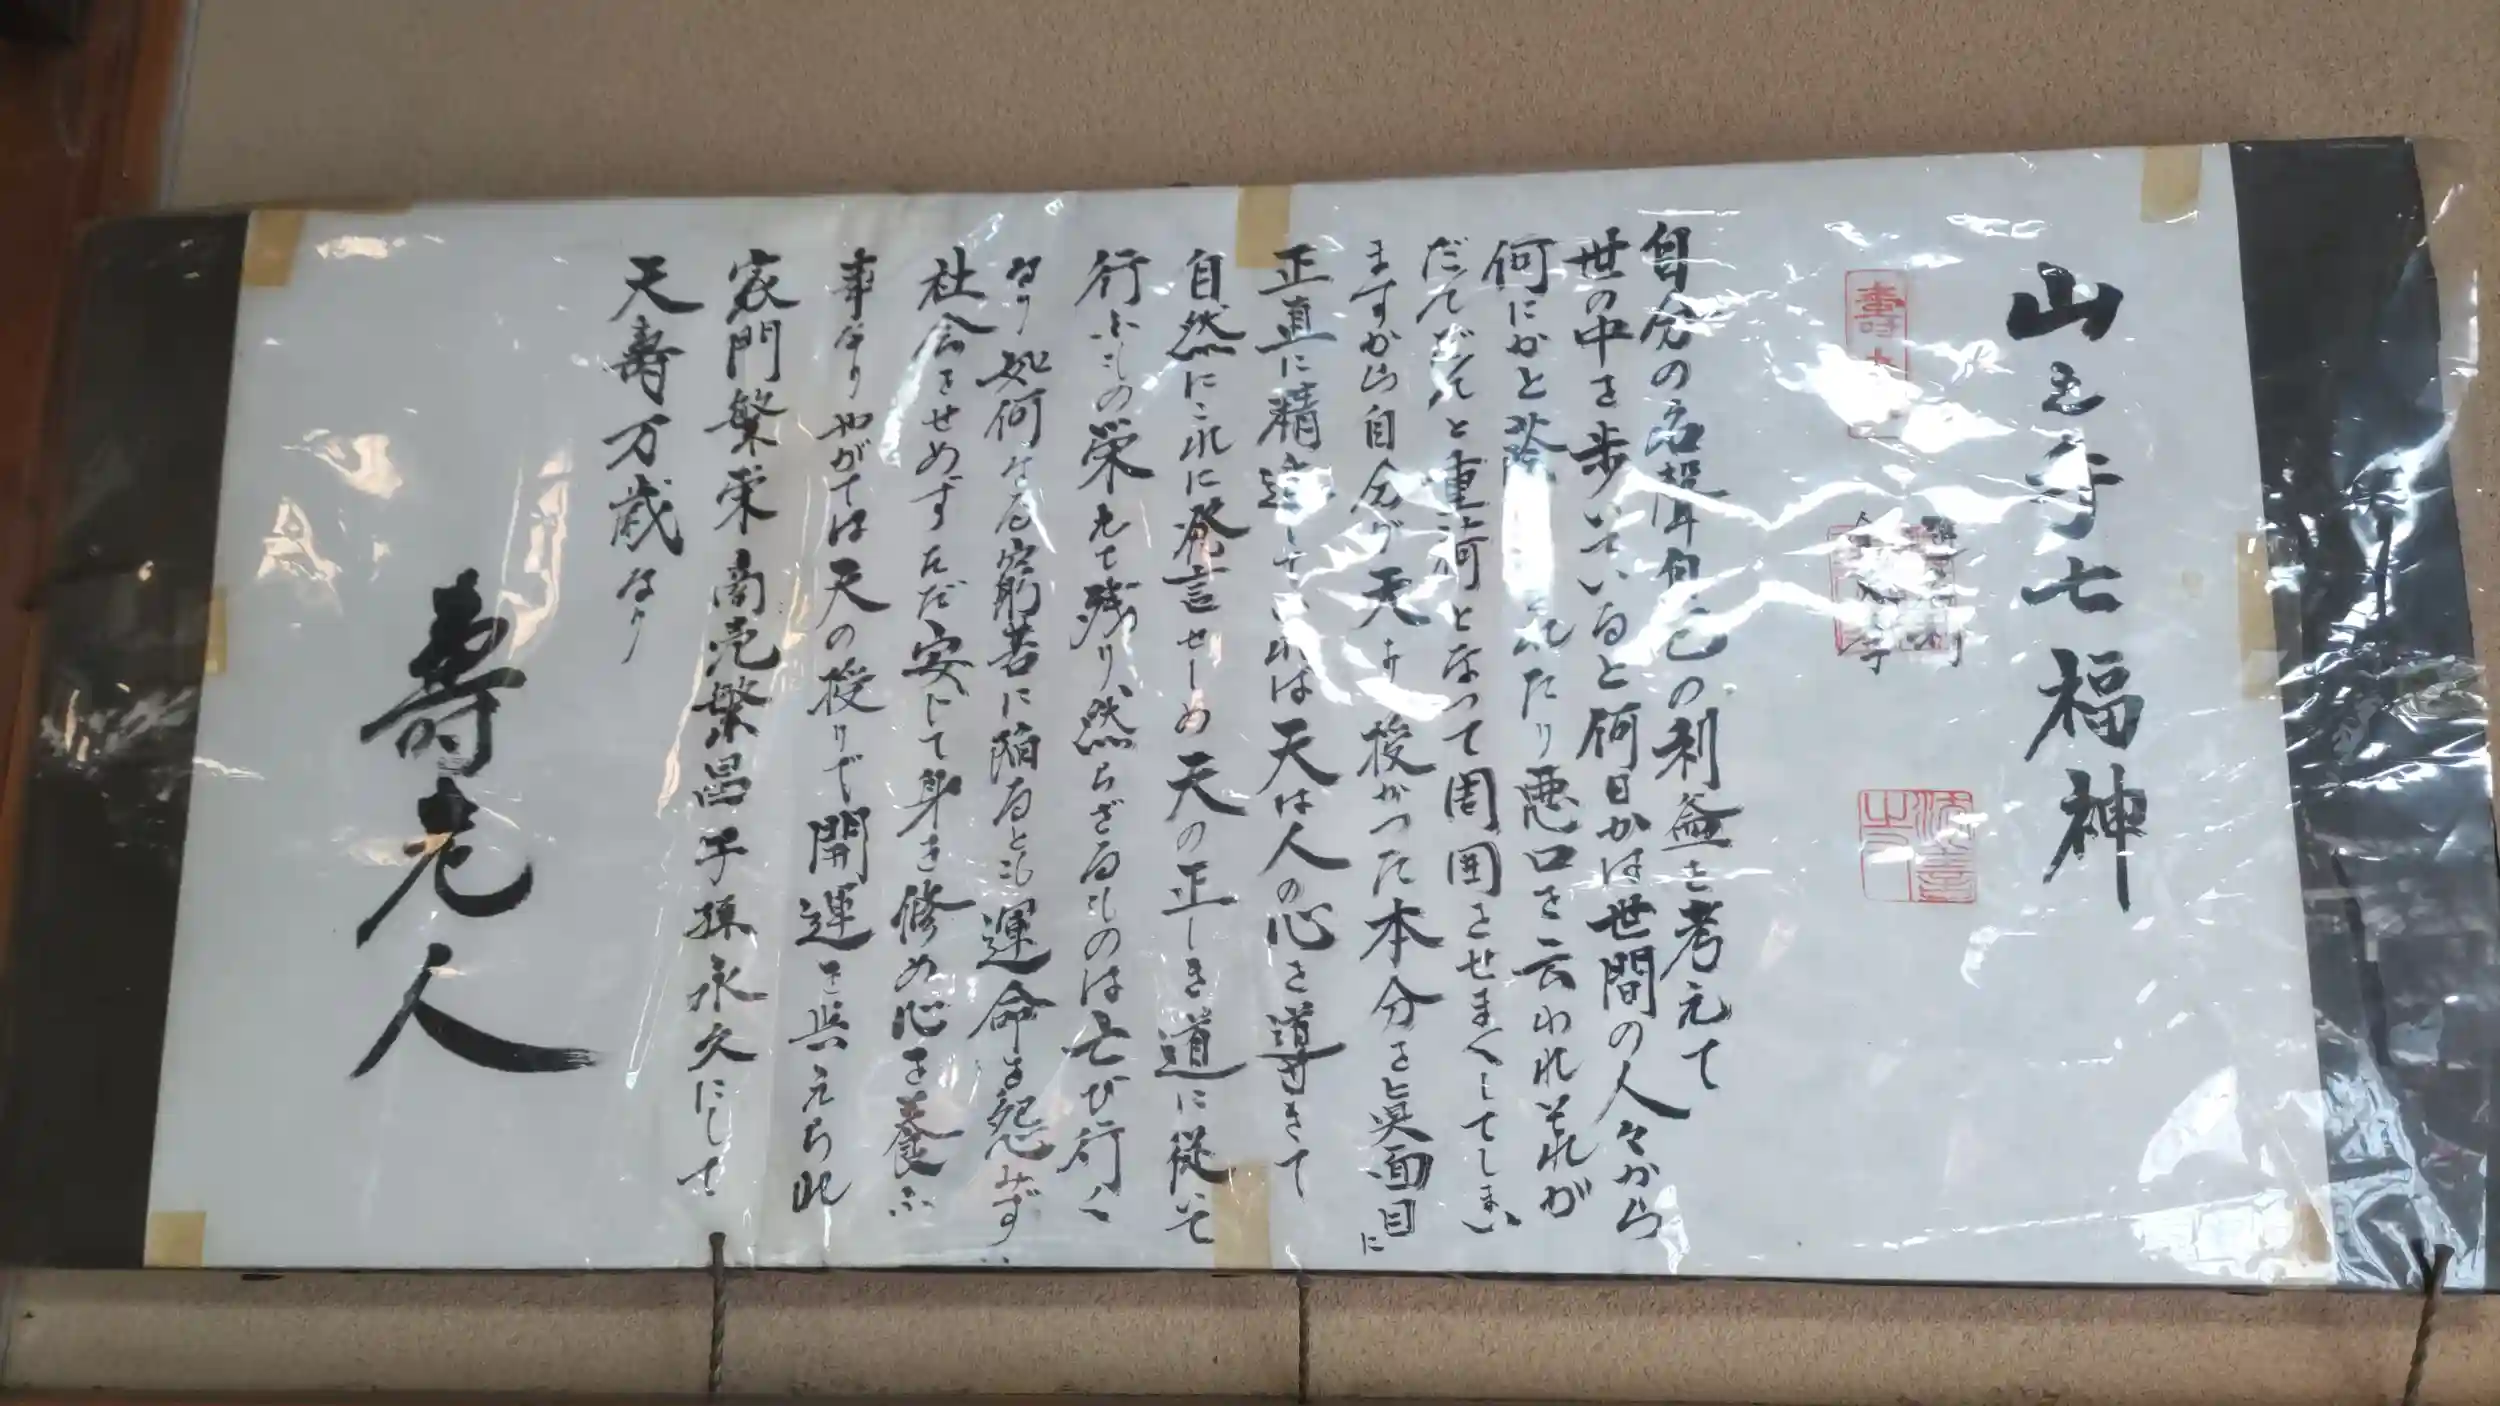 山之寺七福神
自分の名聲自己の利益を考えて
世の中を歩いていると何日かは世間の人々から
何にかと陰 たり悪口を云われそれが
だんだんと重荷となって周囲をせまくしてしまい
ますから自分が天より授かった本分を眞面目に
正直に精進していれば天は人の心を導きて
自然にこれに発言せしめ天の正しき道に従いて
行ふもの栄えて残り然らざるものは亡び行く
なり如何なる窮苦に陥るとも運命を怨みず
社会をせめずただ安じて身を修め心を養ふ
事なりやがては天の授りで開運を与えられ
家門繁栄商売繁昌子孫永久にして
天壽万歳なり
壽老人